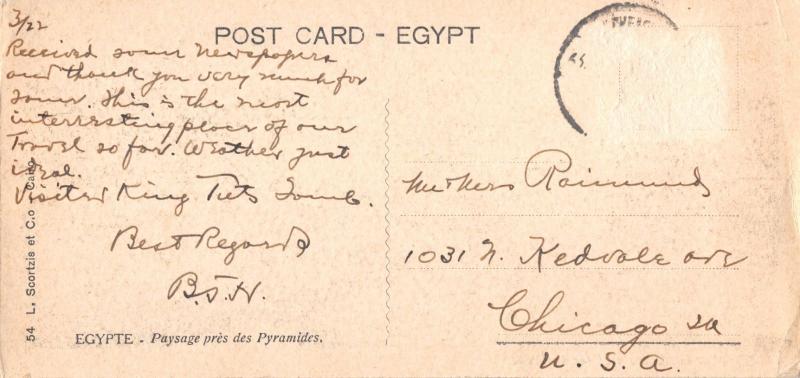 POST CARD - EGYPT
3/22
Received some newspapers
and thank you very much for
same. This is the most
interresting place of our
Travel so far. Weather just
ideal.
Visited King Tuts Tomb.
Best Regards
B.J.H.
Mr & Mrs Raimund
1031 N. Kedvale ave
Chicago Ill
U. S. A.
EGYPTE - Paysage près des Pyramides.
54 L. Scortzis et C.o Caire